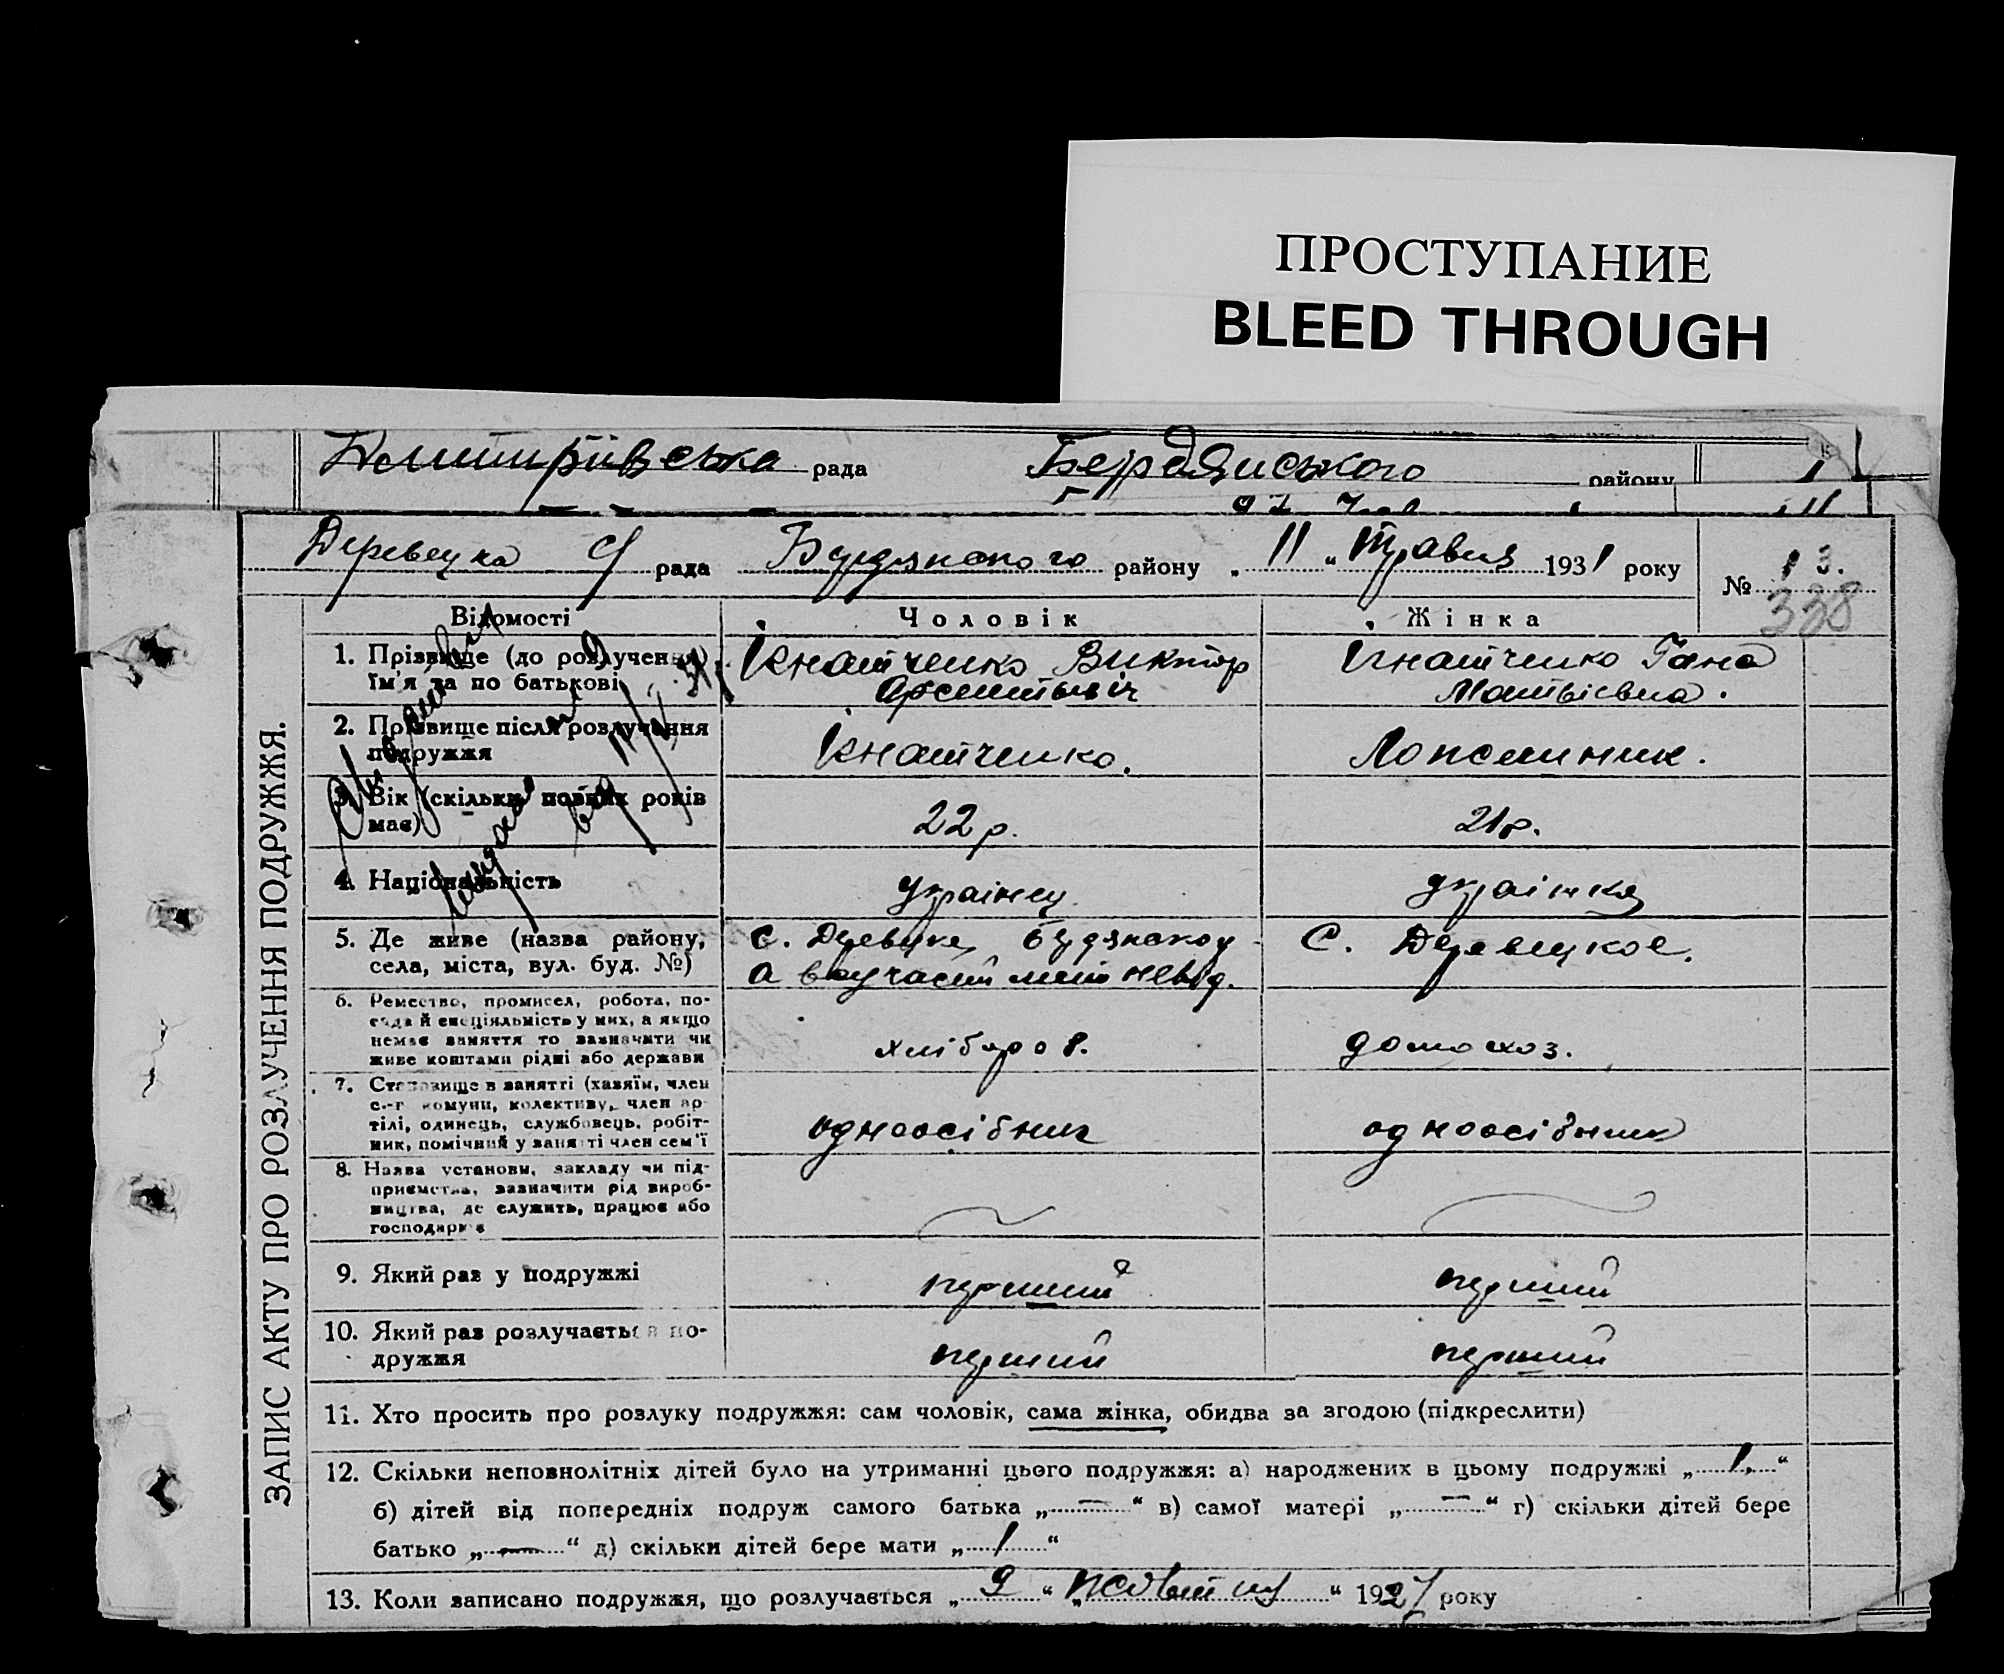 ПРОСТУПАНИЕ
BLEED THROUGH
рада Бердянського району
Деревецка рада району „ 11 „ Травня 1931 року № 13.
338
ЗАПИС АКТУ ПРО РОЗЛУЧЕННЯ ПОДРУЖЖЯ.
Відомості Чоловік Жінка
1. Прізвище (до розлучення) Ігнатченко Виктор Ігнатченко Гана
ім'я та по батькові Матвієвна.
2. Прізвище після розлучення
подружжя Ігнатченко.
3. Вік (скільки повних років
має) 22 р. 21 р.
4. Національність українец українка
5. Де живе (назва району,
села, міста, вул. буд. №) с. с.
6. Ремество, промисел, робота, по-
сада й спеціяльність у них, а якщо
немає заняття то зазначити чи
живе коштами рідні або держави хлібороб. домохоз.
7. Становище в занятті (хазяїн, член
с.-г комуни, колективу, член ар-
тілі, одинець, службовець, робіт-
ник, помічний у занятті член сем'ї одноосібник одноосібник
8. Назва установи, закладу чи під-
приємства, зазначити рід вироб-
ництва, де служить, працює або
господарює
9. Який раз у подружжі перший перший
10. Який раз розлучається по-
дружжя перший перший
11. Хто просить про розлуку подружжя: сам чоловік, сама жінка, обидва за згодою (підкреслити)
12. Скільки неповнолітніх дітей було на утриманні цього подружжя: а) народжених в цьому подружжі „ 1. “
б) дітей від попередніх подруж самого батька „ — “ в) самої матері „ — “ г) скільки дітей бере
батько „ — “ д) скільки дітей бере мати „ 1 “
13. Коли записано подружжя, що розлучається „ 9 “ „ жовтня “ 1927 року